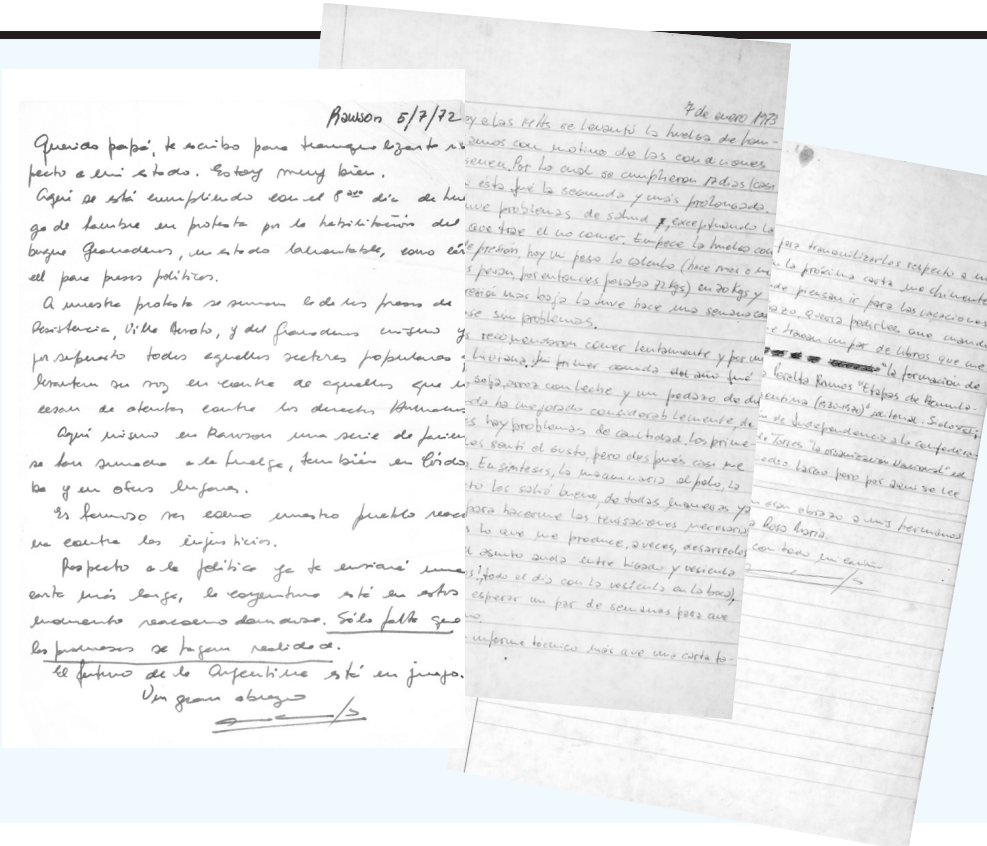 Rawson 5/7/72
Querido papá, te escribo para tranquilizarte res
pecto a mi estado. Estoy muy bien.
Aquí se está cumpliendo con el 8vo día de huel
ga de hambre en protesta por la habilitación del
buque Granaderos, en estado lamentable, como cár
cel para presos políticos.
A nuestra protesta se suman la de los presos de
Resistencia, Villa Devoto, y del Granaderos mismo y
por supuesto todos aquellos sectores populares
levantan su voz en contra de aquellos que
cesan de atentar contra los derechos Humanos
Aquí mismo en Rawson una serie de
se han sumado a la huelga, también en Córdo
ba y en otros lugares.
Es famoso ver como nuestro pueblo reac
na contra las injusticias.
Respecto a la política ya te enviaré una
carta más larga, la coyuntura está en estos
momentos reacomodandose. Sólo falta que
las promesas se hagan realidad.
El futuro de la Argentina está en juego.
Un gran abrazo
7 de enero 1973
se levantó la huelga de ham-
con motivo de las condiciones
Por lo cual se cumplieron
ésta fué la segunda y más prolongada.
problemas de salud, exceptuando
que trae el no comer. Empecé la huelga con
presión, hoy mi peso lo calculo (hace mas o me
por entonces pesaba 72 kgs) en 70 kgs y
más baja la tuve hace una semana
sin problemas.
recomendaron comer lentamente y por
liviana. Mi primer comida fué
sopa, arroz con leche y un pedazo de
ha mejorado considerablemente, de
hay problemas de cantidad. Los prime-
sentí el gusto, pero después casi me
En síntesis, la maquinaria al pelo, lo
les salió bueno, de todas maneras ya
para hacerme las revisaciones necesaria
lo que me produce, a veces, desarreglos
asunto anda entre hígado y vesícula
todo el día con la vesícula en la boca),
esperar un par de semanas para que
informe tecnico más que una carta fa-
para tranquilizarlos respecto a mi
la próxima carta me chimenten
piensan ir para las vacaciones
quería pedirles que cuando
traigan un par de libros que me
"la formación de
Peralta Ramos "Etapas de Acumula-
Independencia a la confedera
Torres "la organización Nacional" ed
medio largo pero por aquí se lee
gran abrazo a mis hermanos
Rosa María.
con todo mi cariño